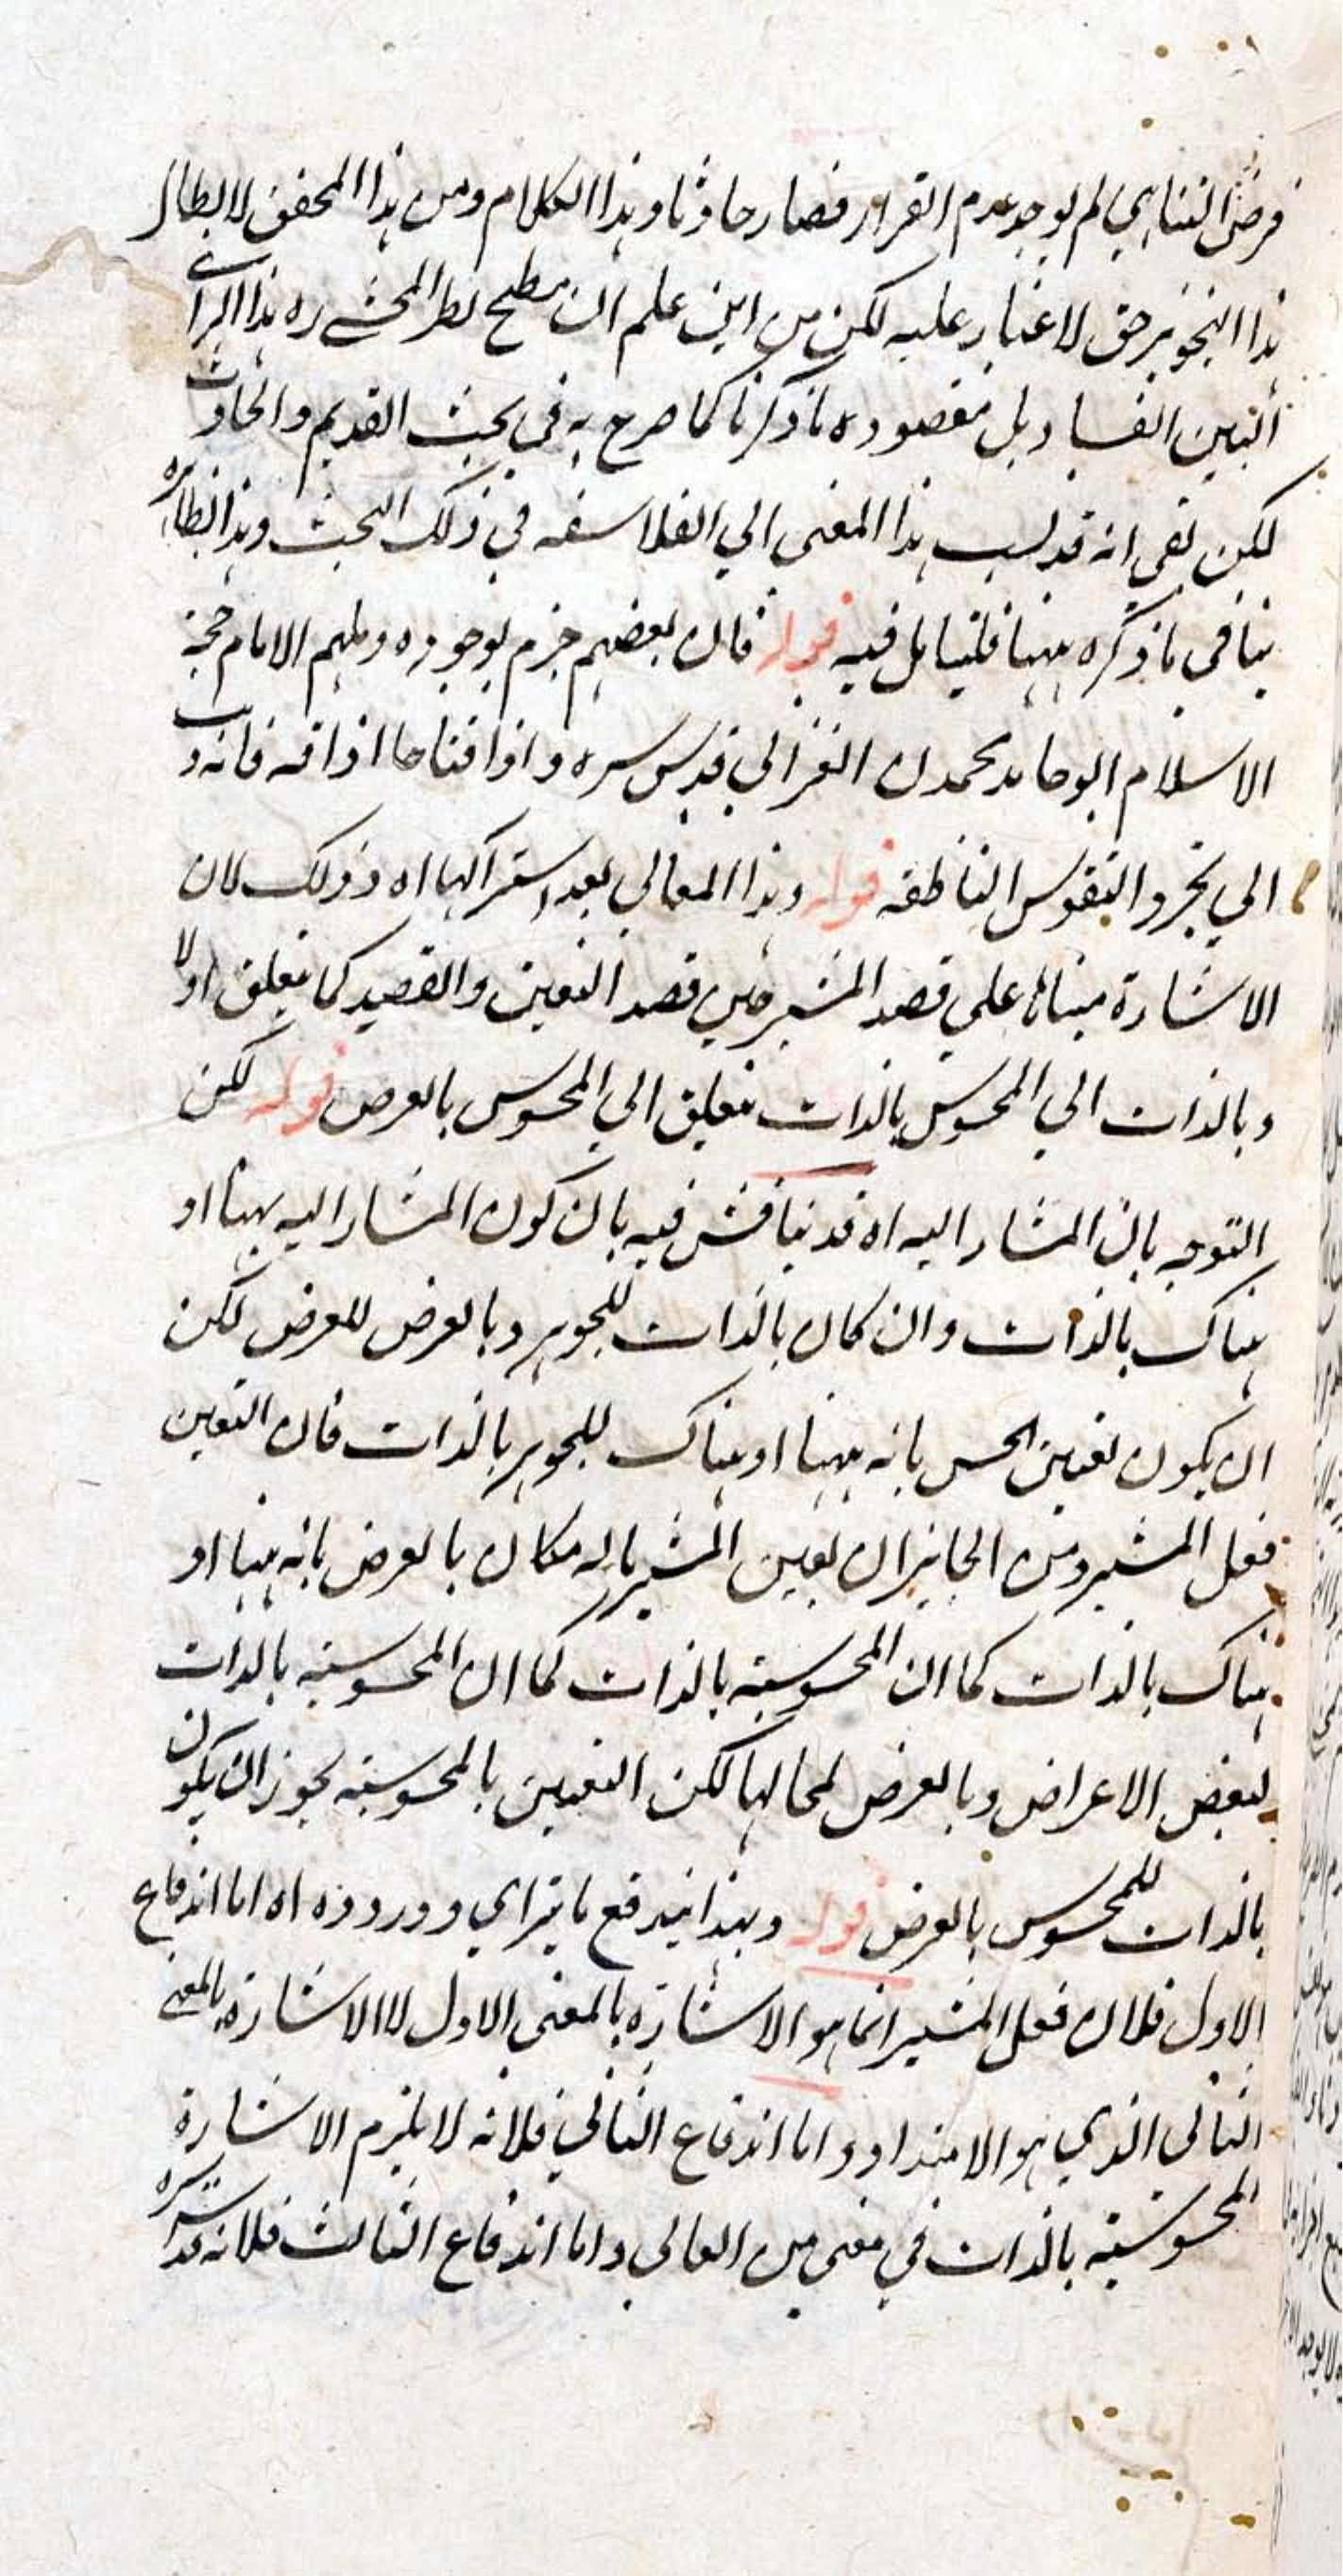 فرض التناهي لم يوجد عدم القرار فصار حادثا وهذا الكلام ومن هذا المحقق لابطال
هذا التجويز حق لا غبار عليه لكن من اين علم ان مطمح نظر المحشي ره هذا الراي
البين الفساد بل مقصوده ما ذكرنا كما صرح به في بحث القديم والحادث
لكن بقي انه قد نسب هذا المعنى الي الفلاسفه في ذلك البحث وهذا بظاهره
ينافي ما ذكره ههنا فليتامل فيه قوله فان بعضهم جزم بوجوده ومنهم الامام حجة
الاسلام ابو حامد محمدن الغزالي قدس سره واذاقنا ما اذاقه فانه ذهب
الي تجرد النفوس الناطقه قوله وهذا المعاني بعد اشتراكها اه وذلك لان
الاشارة مبناها علي قصد المشير من قصد التعين والقصد كما يتعلق اولا
وبالذات الي المحسوس بالذات يتعلق الي المحسوس بالعرض قوله لكن
التوجه بان المشار اليه اه قد يناقش فيه بان كون المشار اليه ههنا او
هناك بالذات وان كان بالذات للجوهر وبالعرض للعرض لكن
ان يكون تعين الحس بانه ههنا او هناك للجوهر بالذات فان التعين
فعل المشير ومن الجايز ان يعين المشير ما له مكان بالعرض بانه ههنا او
هناك بالذات كما ان المحسوسية بالذات كما ان المحسوسيه بالذات
لبعض الاعراض وبالعرض لمحالها لكن التعين بالمحسوسيه يجوز ان يكون
بالذات للمحسوس بالعرض قوله وبهذا يندفع ما يترااي ووروده اه اما اندفاع
الاول فلان فعل المشير انما هو الاشاره بالمعنى الاول لا الاشارة بالمعنى
الثاني الذي هو الامتداد واما اندفاع الثاني فلانه لا يلزم الاشارة
المحسوسية بالذات في معنى من المعاني واما اندفاع الثالث فلانه قد